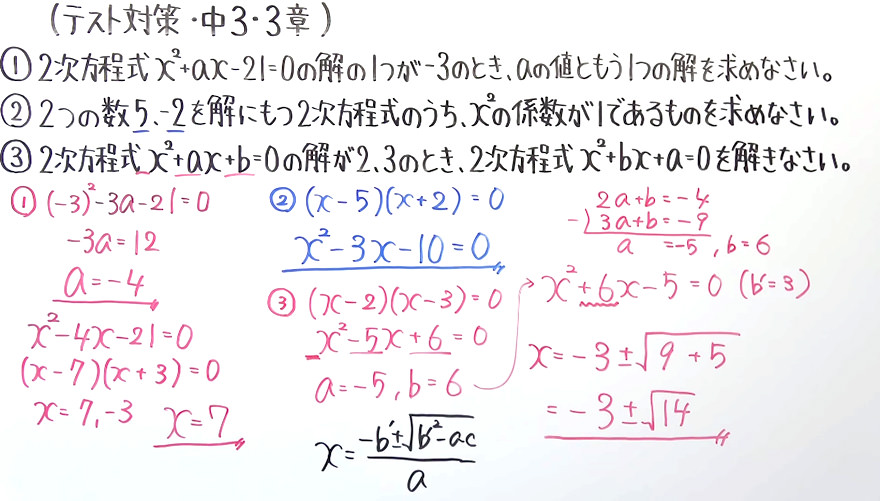 (テスト対策・中3・3章)
① 2次方程式 x²+ax-21=0の解の1つが-3のとき、aの値ともう1つの解を求めなさい。
② 2つの数5、-2を解にもつ2次方程式のうち、x²の係数が1であるものを求めなさい。
③ 2次方程式 x²+ax+b=0の解が2、3のとき、2次方程式 x²+bx+a=0を解きなさい。
① (-3)²-3a-21=0
-3a=12
a=-4
x²-4x-21=0
(x-7)(x+3)=0
x=7,-3 x=7
② (x-5)(x+2)=0
x²-3x-10=0
③ (x-2)(x-3)=0
x²-5x+6=0
a=-5, b=6
x=(-b'±√(b'²-ac))/a
2a+b=-4
-)3a+b=-9
a =-5, b=6
x²+6x-5=0 (b'=3)
x=-3±√(9+5)
=-3±√14